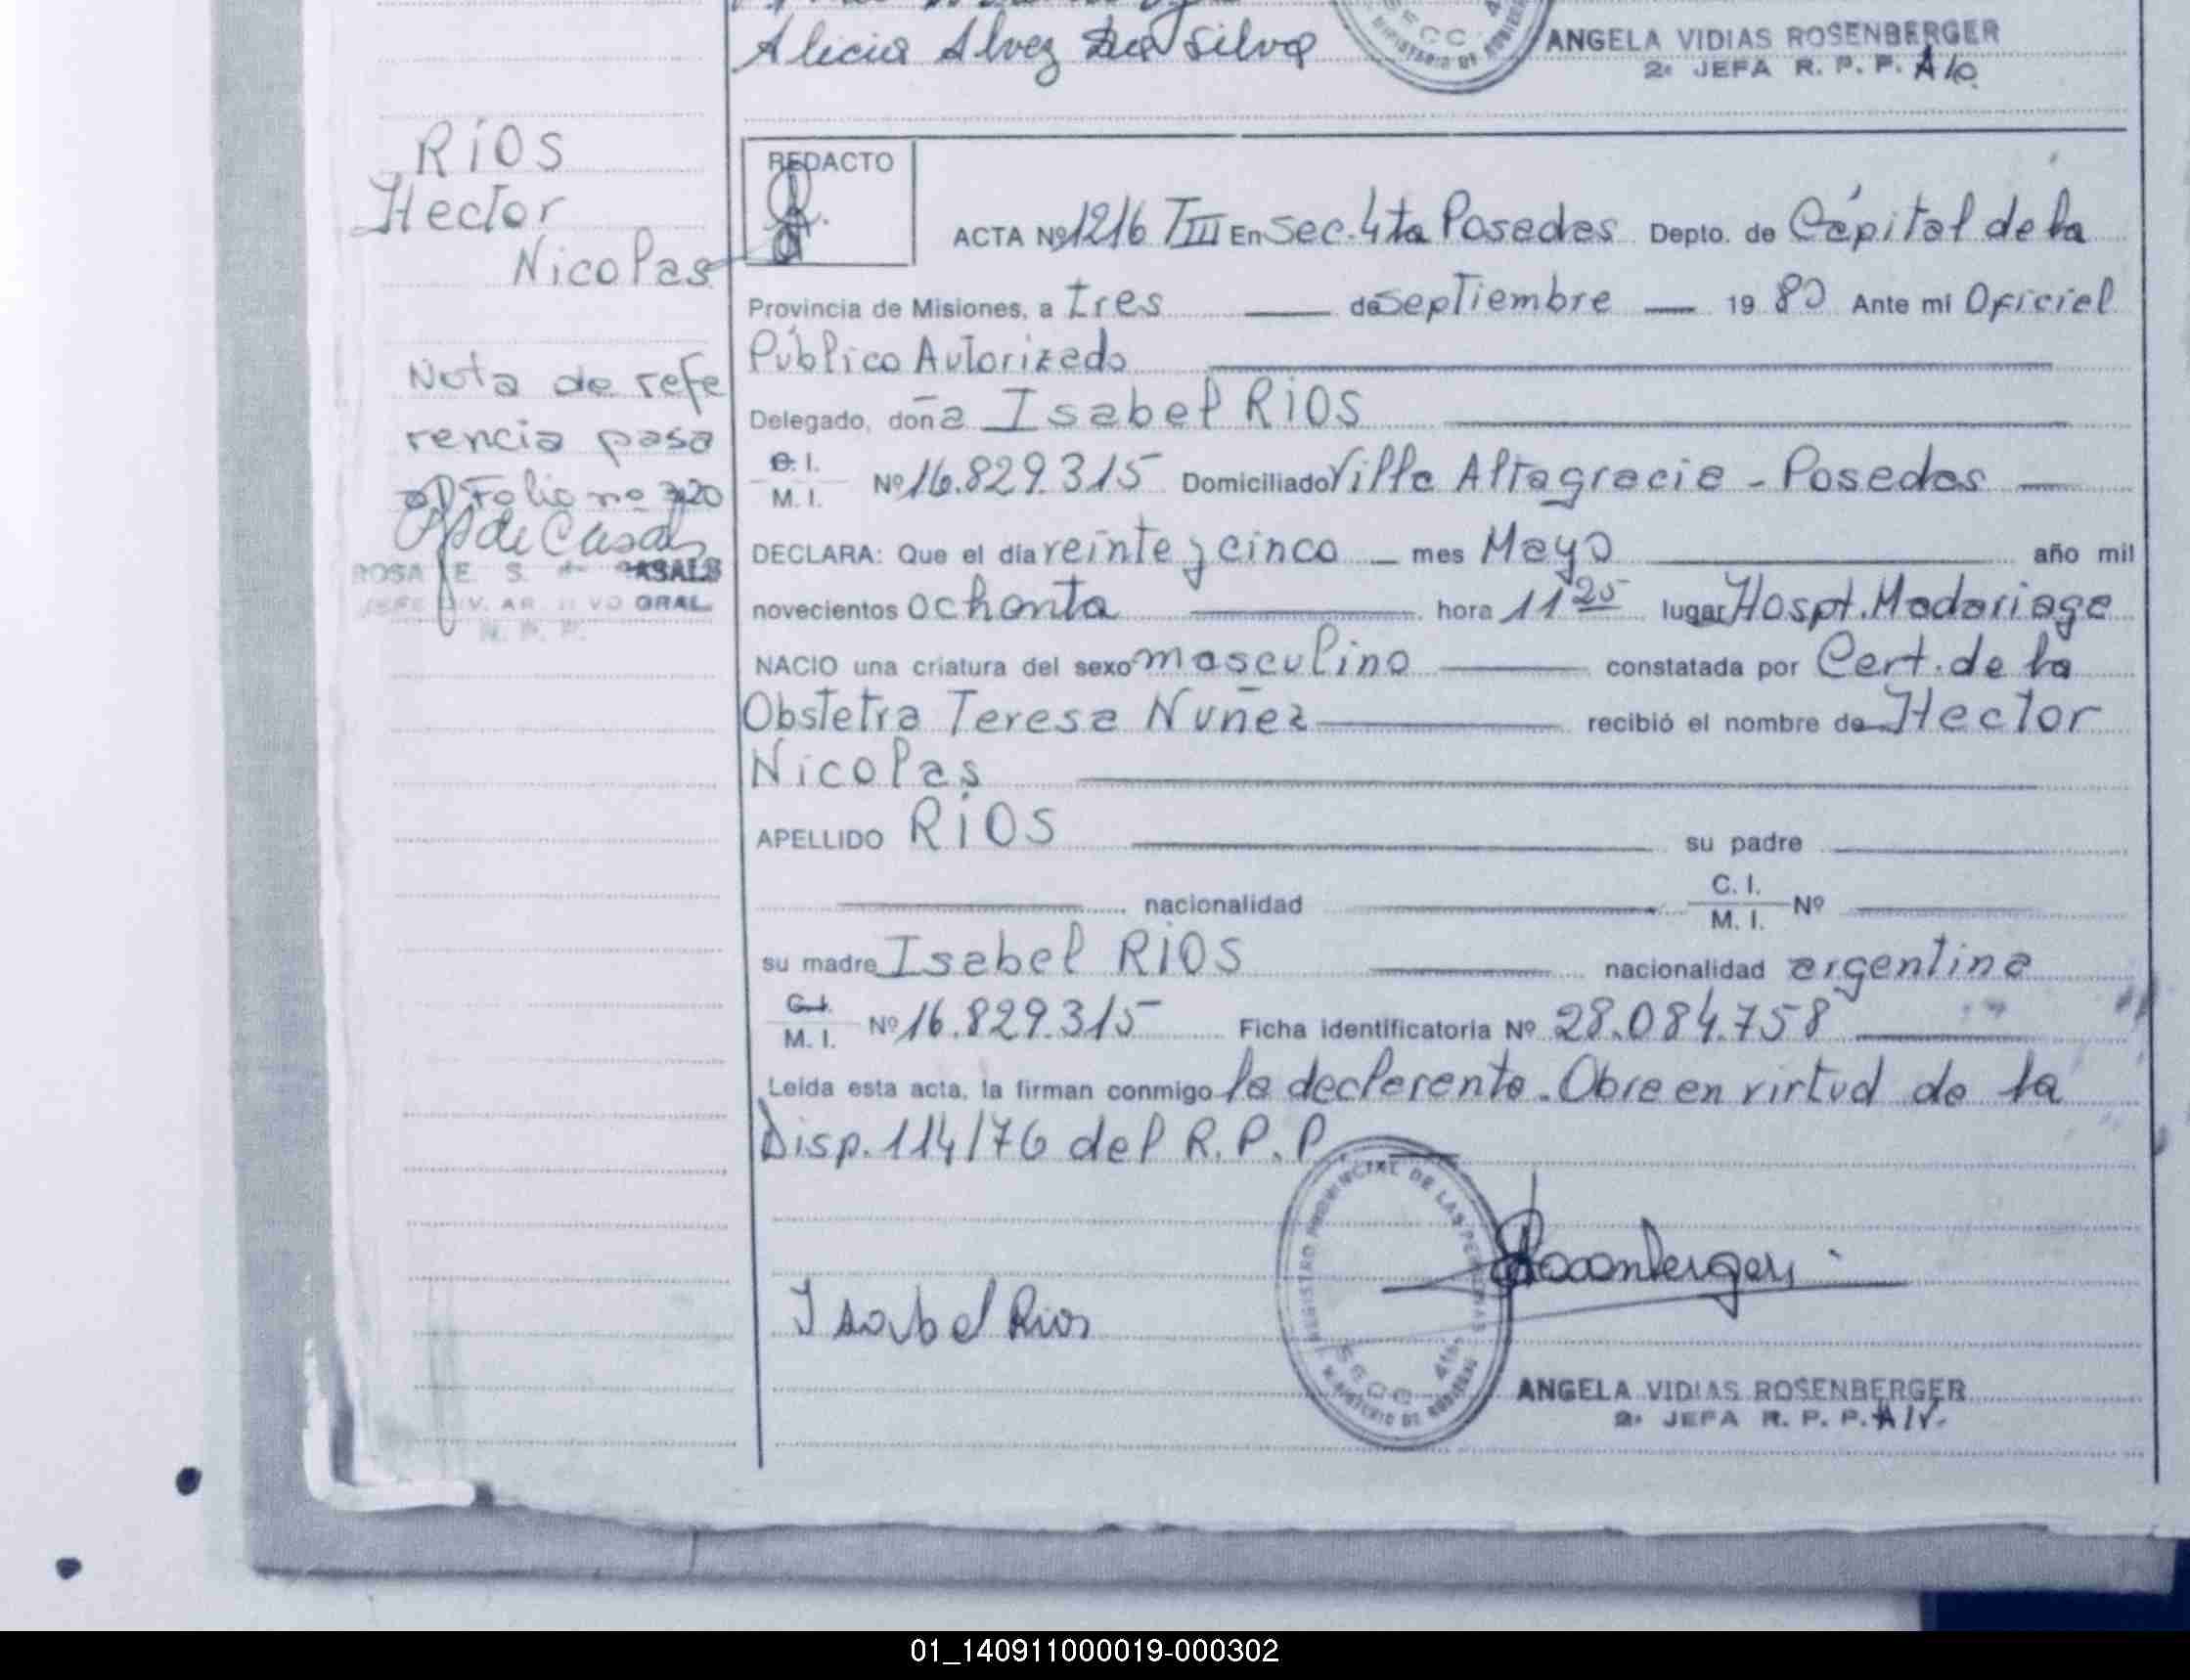 Alicia Alvez Da Silva
SECC. 4
MINISTERIO DE GOBIERNO
ANGELA VIDIAS ROSENBERGER
2ª JEFA R. P. P. A/c.
RíOS
Hector
Nicolas
Nota de refe
rencia pasa
al Folio nº 320
ROSA E. S. de CASALS
JEFE DIV. ARCHIVO GRAL.
R. P. P.
REDACTO
ACTA Nº 1216 TIII En Sec. 4ta Posadas Depto. de Cápital de la
Provincia de Misiones, a tres de Septiembre 19 80 Ante mi Oficial
Público Autorizado
Delegado, doña Isabel RIOS
C. I.
M. I. Nº 16.829.315 Domiciliado Villa Altagracia - Posadas
DECLARA: Que el día veinte y cinco mes Mayo año mil
novecientos ochenta hora 11 25 lugar Hospt. Madariaga
NACIO una criatura del sexo masculino constatada por Cert. de la
Obstetra Teresa Nuñez recibió el nombre de Hector
Nicolas
APELLIDO RIOS su padre
nacionalidad C. I.
M. I. Nº
su madre Isabel RIOS nacionalidad argentina
C. I.
M. I. Nº 16.829.315 Ficha identificatoria Nº 28.084.758
Leída esta acta, la firman conmigo la declarente. Obra en virtud de la
Disp. 114/76 del R. P. P.
REGISTRO PROVINCIAL DE LAS PERSONAS
SECC. 4ta.
MINISTERIO DE GOBIERNO
Rosenberger
Isabel Rios
ANGELA VIDIAS ROSENBERGER
2ª JEFA R. P. P. A/c.
01_140911000019-000302